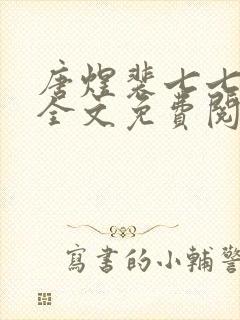 唐煌裴七七
全文免費閱
寫書的小輔警